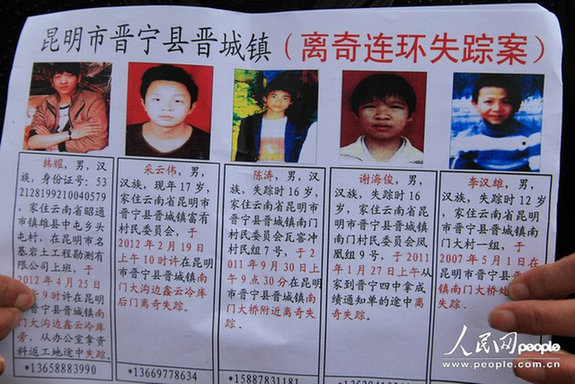 昆明市晋宁县晋城镇（离奇连环失踪案）
韩耀，男，汉
族，身份证号：53
2128199210040579
，家住云南省昭通
市镇雄县中屯乡头
屯村，在昆明市名
基岩土工程勘测有
限公司上班，于
2012年4月25日
时许在昆明
县晋城镇南
门大沟边鑫云冷库
旁，从办公室拿资
料返工地途中失踪.
*13658883990
采云伟，男，
汉族，现年17岁，
家住云南省昆明市
晋宁县晋城镇富有
村民委员会，于
2012年2月19日
上午10时许在昆
明市晋宁县晋城镇
南门大沟边鑫云冷库
后门离奇失踪.
*13669778634
陈涛，男，汉
族，失踪时16岁，
家住云南省昆明市
晋宁县晋城镇南门
村民委员会瓦窑冲
村民组7号，于2
011年9月30日上
午9点30分在昆明
市晋宁县晋城镇南
门大桥附近离奇失
踪.
*15887831181
谢海俊，男，汉
族，失踪时16岁，
家住云南省昆明市
晋宁县晋城镇南门
南门村民委员会凤
凰组9号，于2011
年1月27日上午从
家到晋宁四中拿成
绩通知单的途中离
奇失踪.
李汉雄，男，
汉族，失踪时12岁，
家住云南省昆明市
晋宁县晋城镇南门
南门大村一组，于
2007年5月1日在
晋宁县晋城镇南
门大桥处
失踪.
人民网 people
www.people.com.cn